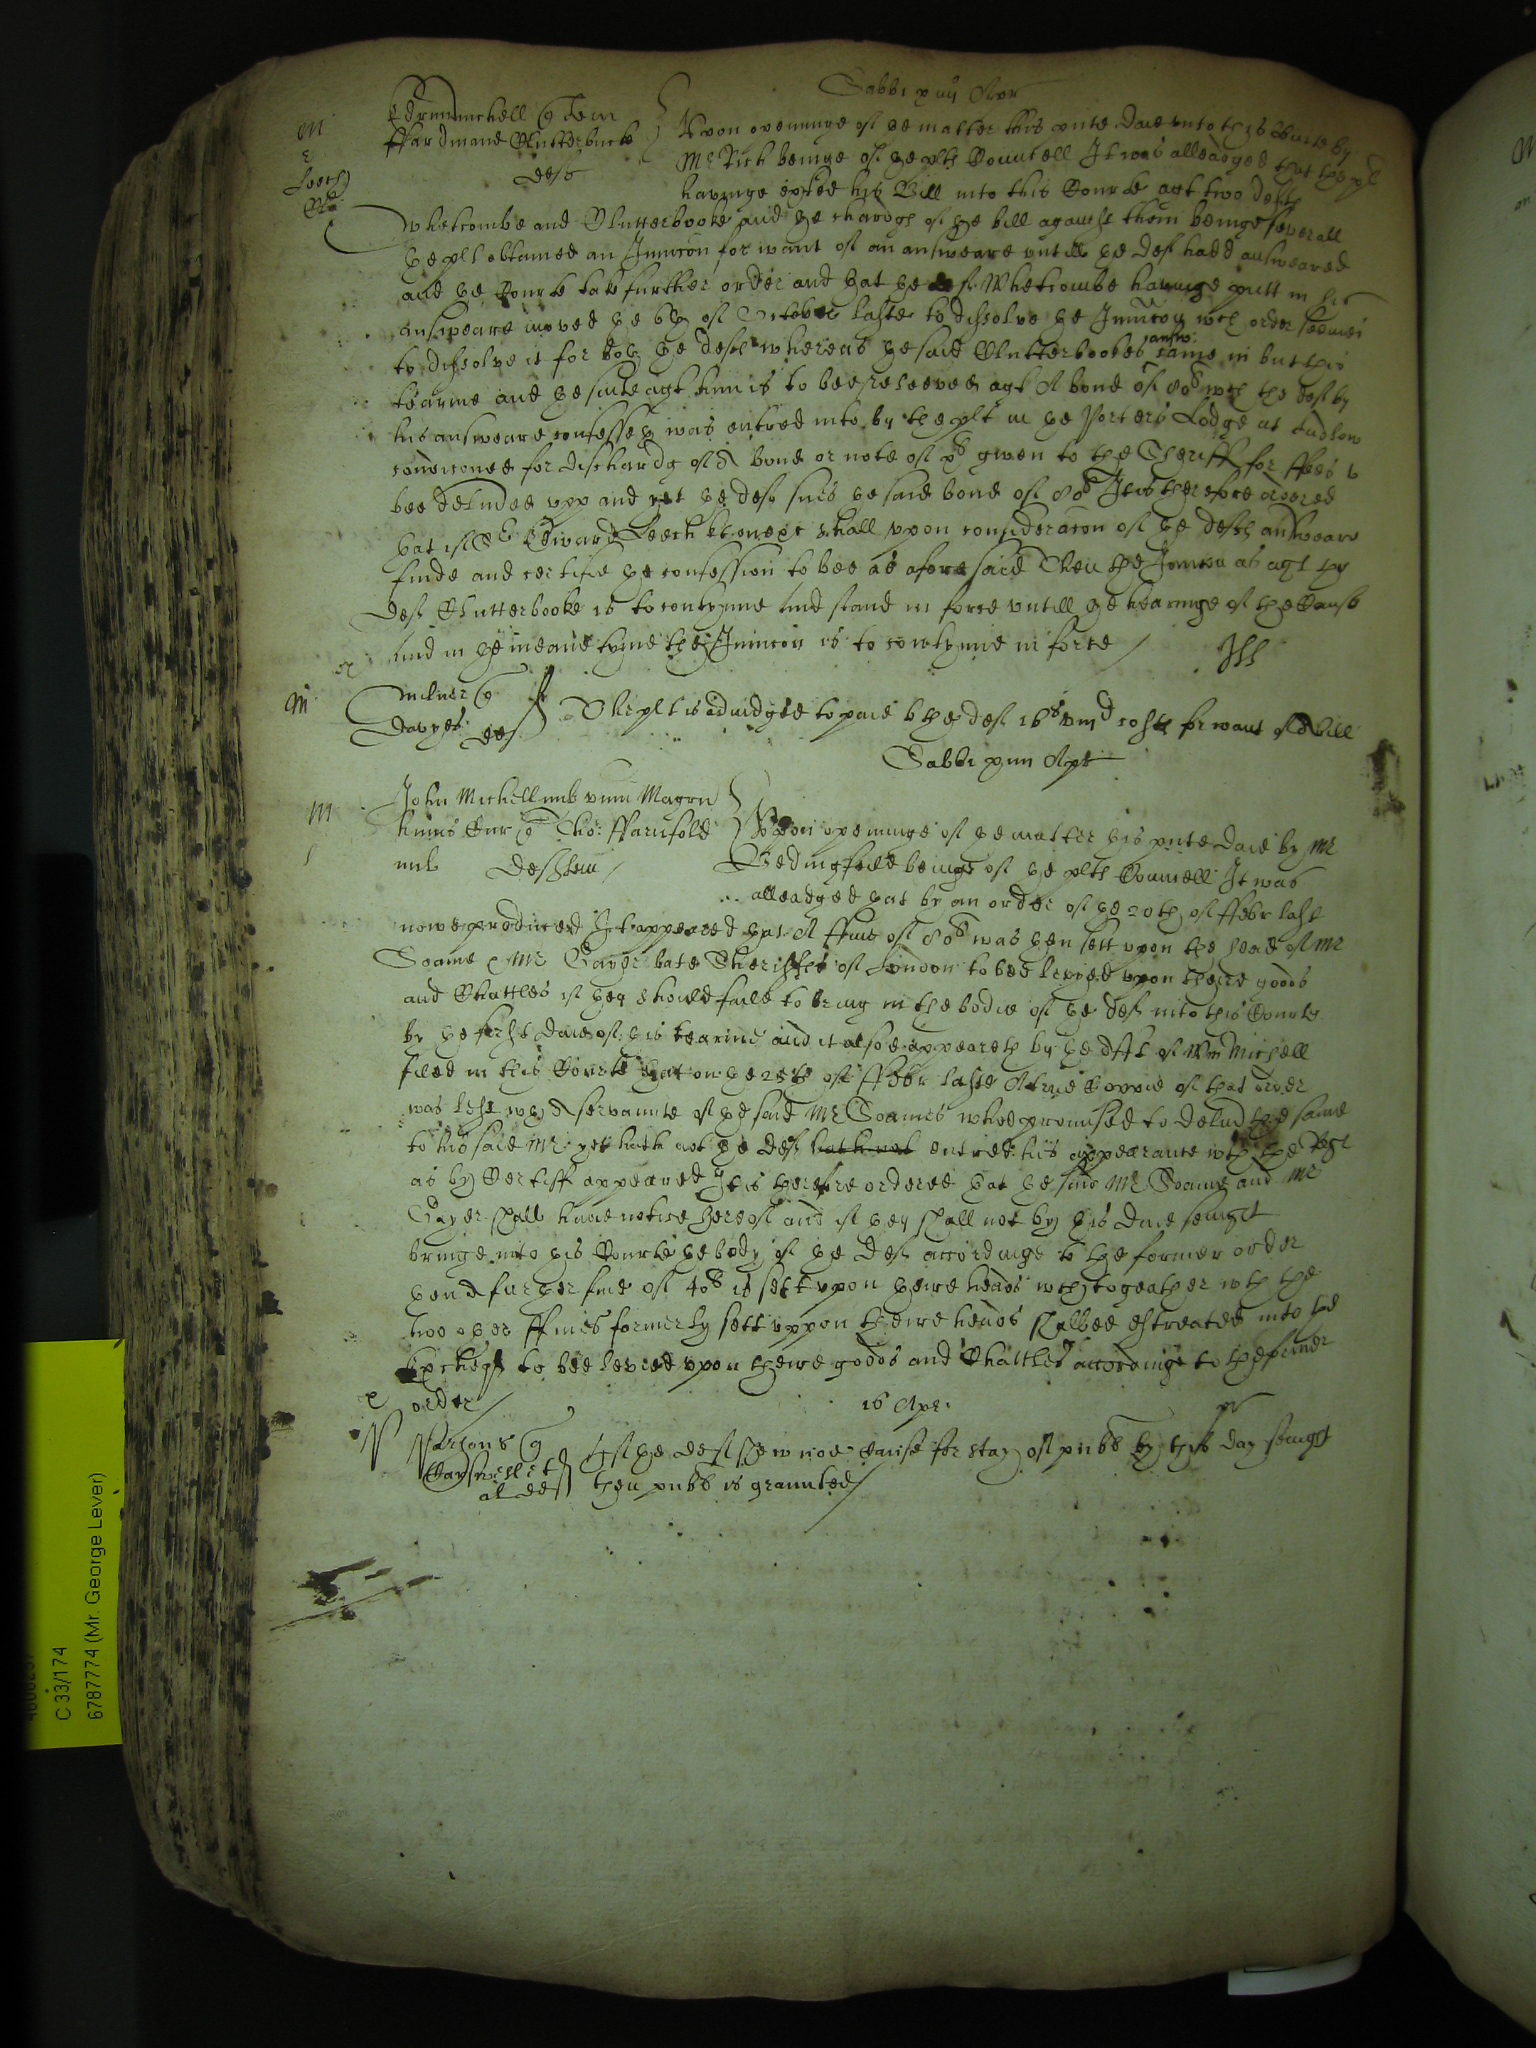 Sabbi xiiij Apr
m
Leech
Edr Minchell q tem
ffardinand Clutterbucke
defts
Upon openinge of the matter this pnte daie unto this Courte by
Mr Rich beinge of the plts Councell It was alleadged that the plt
havinge exhted his Bill into this Courte agt two defts
Whetcombe and Clutterbooke and the chardge of the bill against them beinge severall
the plt obtained an Iniuncon for want of an answeare untill the deft hadd answeared
and the Courte take further order and that the deft Whetcombe havinge putt in his
answeare moved the 6th of October laste to dissolve the Iniuncon wch order seemes
to dissolve it for both the defts whereas the said Clutterbookes answ: came in but this
tearme and the suite agt him is to bee releeved agt A bond of 80l wch the deft by
his answeare confesseth was entred into by the plt in the Porters Lodge at Ludlow
condiconed for dischardg of A bond or note of xl given to the Sheriff for ffees to
bee deliuded upp and yet the deft sues the said bond of 80l It is therefore ordered
that if Sr Edward Leech kt one etc shall upon consideracon of the defts answeare
finde and certifie the confession to bee as aforesaid Then the Iniuncon as agt the
deft Clutterbooke is to contynue and stand in force untill the hearinge of the Cause
and in the meane tyme the Iniuncon is to contynue in force
ex
m
Milner q
Davyes deft
The plt is adiudged to paie the deft 16s viijd costs for want of A Bill
Sabbi xiiij Apr
m
John Michell mil unus Magror
huius Cur q Tho: ffarnfold
mil deft tem
Upon openinge of the matter this pnte daie by Mr
Bedingfeild beinge of the plts Councell It was
alleadged that by an order of the 20th of ffebr last
nowe produced It appeared that A ffine of 80l was then sett upon the head of Mr
Soame & Mr Gayer late Sheriffes of London to bee levyed upon theire goods
and Chattles if they should faile to bring in the bodie of the deft into this Courte
by the firste daie of this tearme and it alsoe appeareth by the afft of Wm Michell
filed in this Courte that on the 25th of ffebr laste A true Coppie of that order
was left wth A servannte of the said Mr Soames whoe promised to delivd the same
to his said Mr yet hath not the deft hath not entred his appearance wth the Regr
as by Certiff appeared It is therefore ordered that the said Mr Soame and Mr
Gayer shall have notice hereof and if they shall not by this daie sevight
bringe into this Courte the body of the deft accordinge to the former order
then A further fine of 40l is sett upon theire heads wch togeather wth the
two other ffines formerly sett uppon theire heads shalbee estreated into the
Excheqr to bee levied upon theire goods and Chattles accordinge to the former
ex order
16 Apr:
P
Parsons q
Carswell et
al deft
If the deft shew noe Cause for stay of publ by this day sevight
then publ is graunted
C 33/174
6787774 (Mr. George Lever)